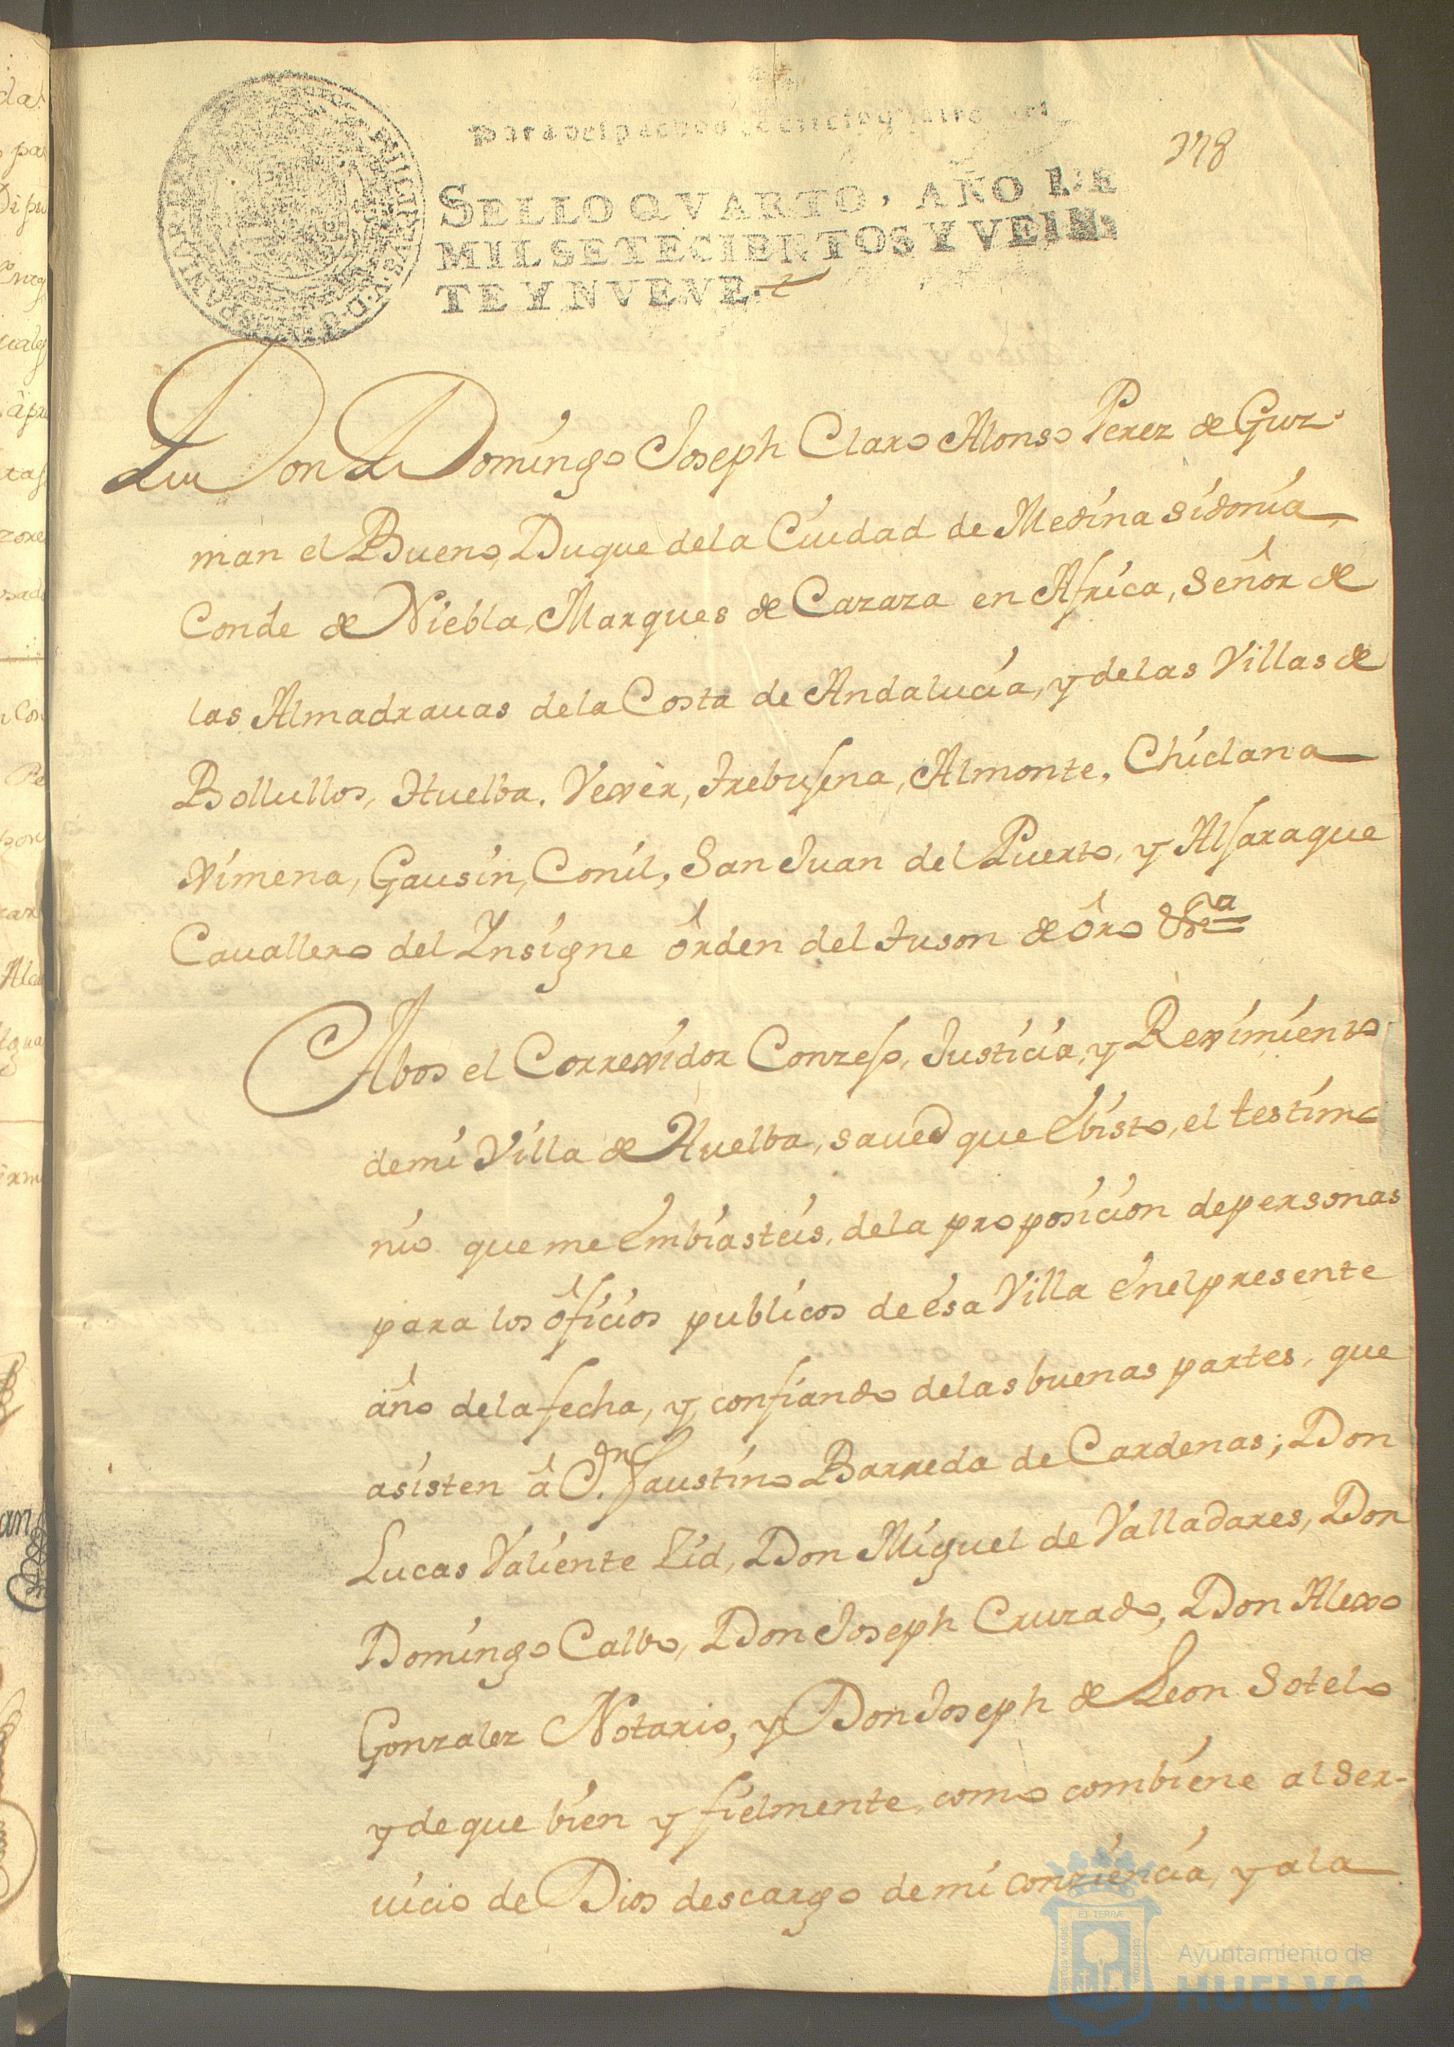 Para despachos de oficio quatro mrs.
378
SELLO QVARTO, AÑO DE
MIL SETECIENTOS Y VEIN
TE Y NVEVE.
Don Domingo Joseph Claro Alonso Perez de Guz
man el Bueno, Duque dela Ciudad de Medina Sidonia
Conde de Niebla, Marques de Cazaza en Africa, Señor de
las Almadrauas dela Costa de Andalucia, y delas Villas de
Bollullos, Huelba, Vexèr, Trebusena, Almonte, Chiclana
Ximena, Gausin, Conil, San Juan del Puerto, y Alfaraque
Cauallero del Insigne ôrden del Tuson de ôro &ra
Abos el Correxidor Conzejo, Justicia, y Reximiento
demi Villa de Huelba, saued que é bisto, el testimo
nio que me émbiasteis, dela proposicion depersonas
para los ôficios publicos de ésa Villa énelpresente
âño delafecha, y confiando delas buenas partes, que
asisten â Dn. Faustino Barreda de Cardenas; Don
Lucas Valiente Zid, Don Miguel de Valladares, Don
Domingo Calbo, Don Joseph Cruzado, Don Alexo
Gonzalez Notario, y Don Joseph de Leon Sotelo
y de que bien y fielmente, como combiene al Ser-
uicio de Dios descargo demi conziencia, y ala
Ayuntamiento de
HUELVA